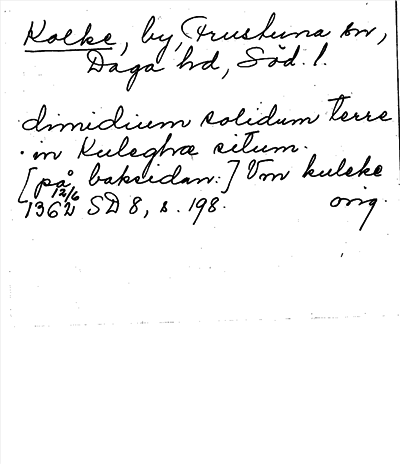 Kolke, by, Frustuna sn,
Daga hd, Söd. l.
dimidium solidum terre
in Kuleghæ situm.
[på baksidan:] Um kulcke
12/6
1362 SD 8, s. 198. orig.